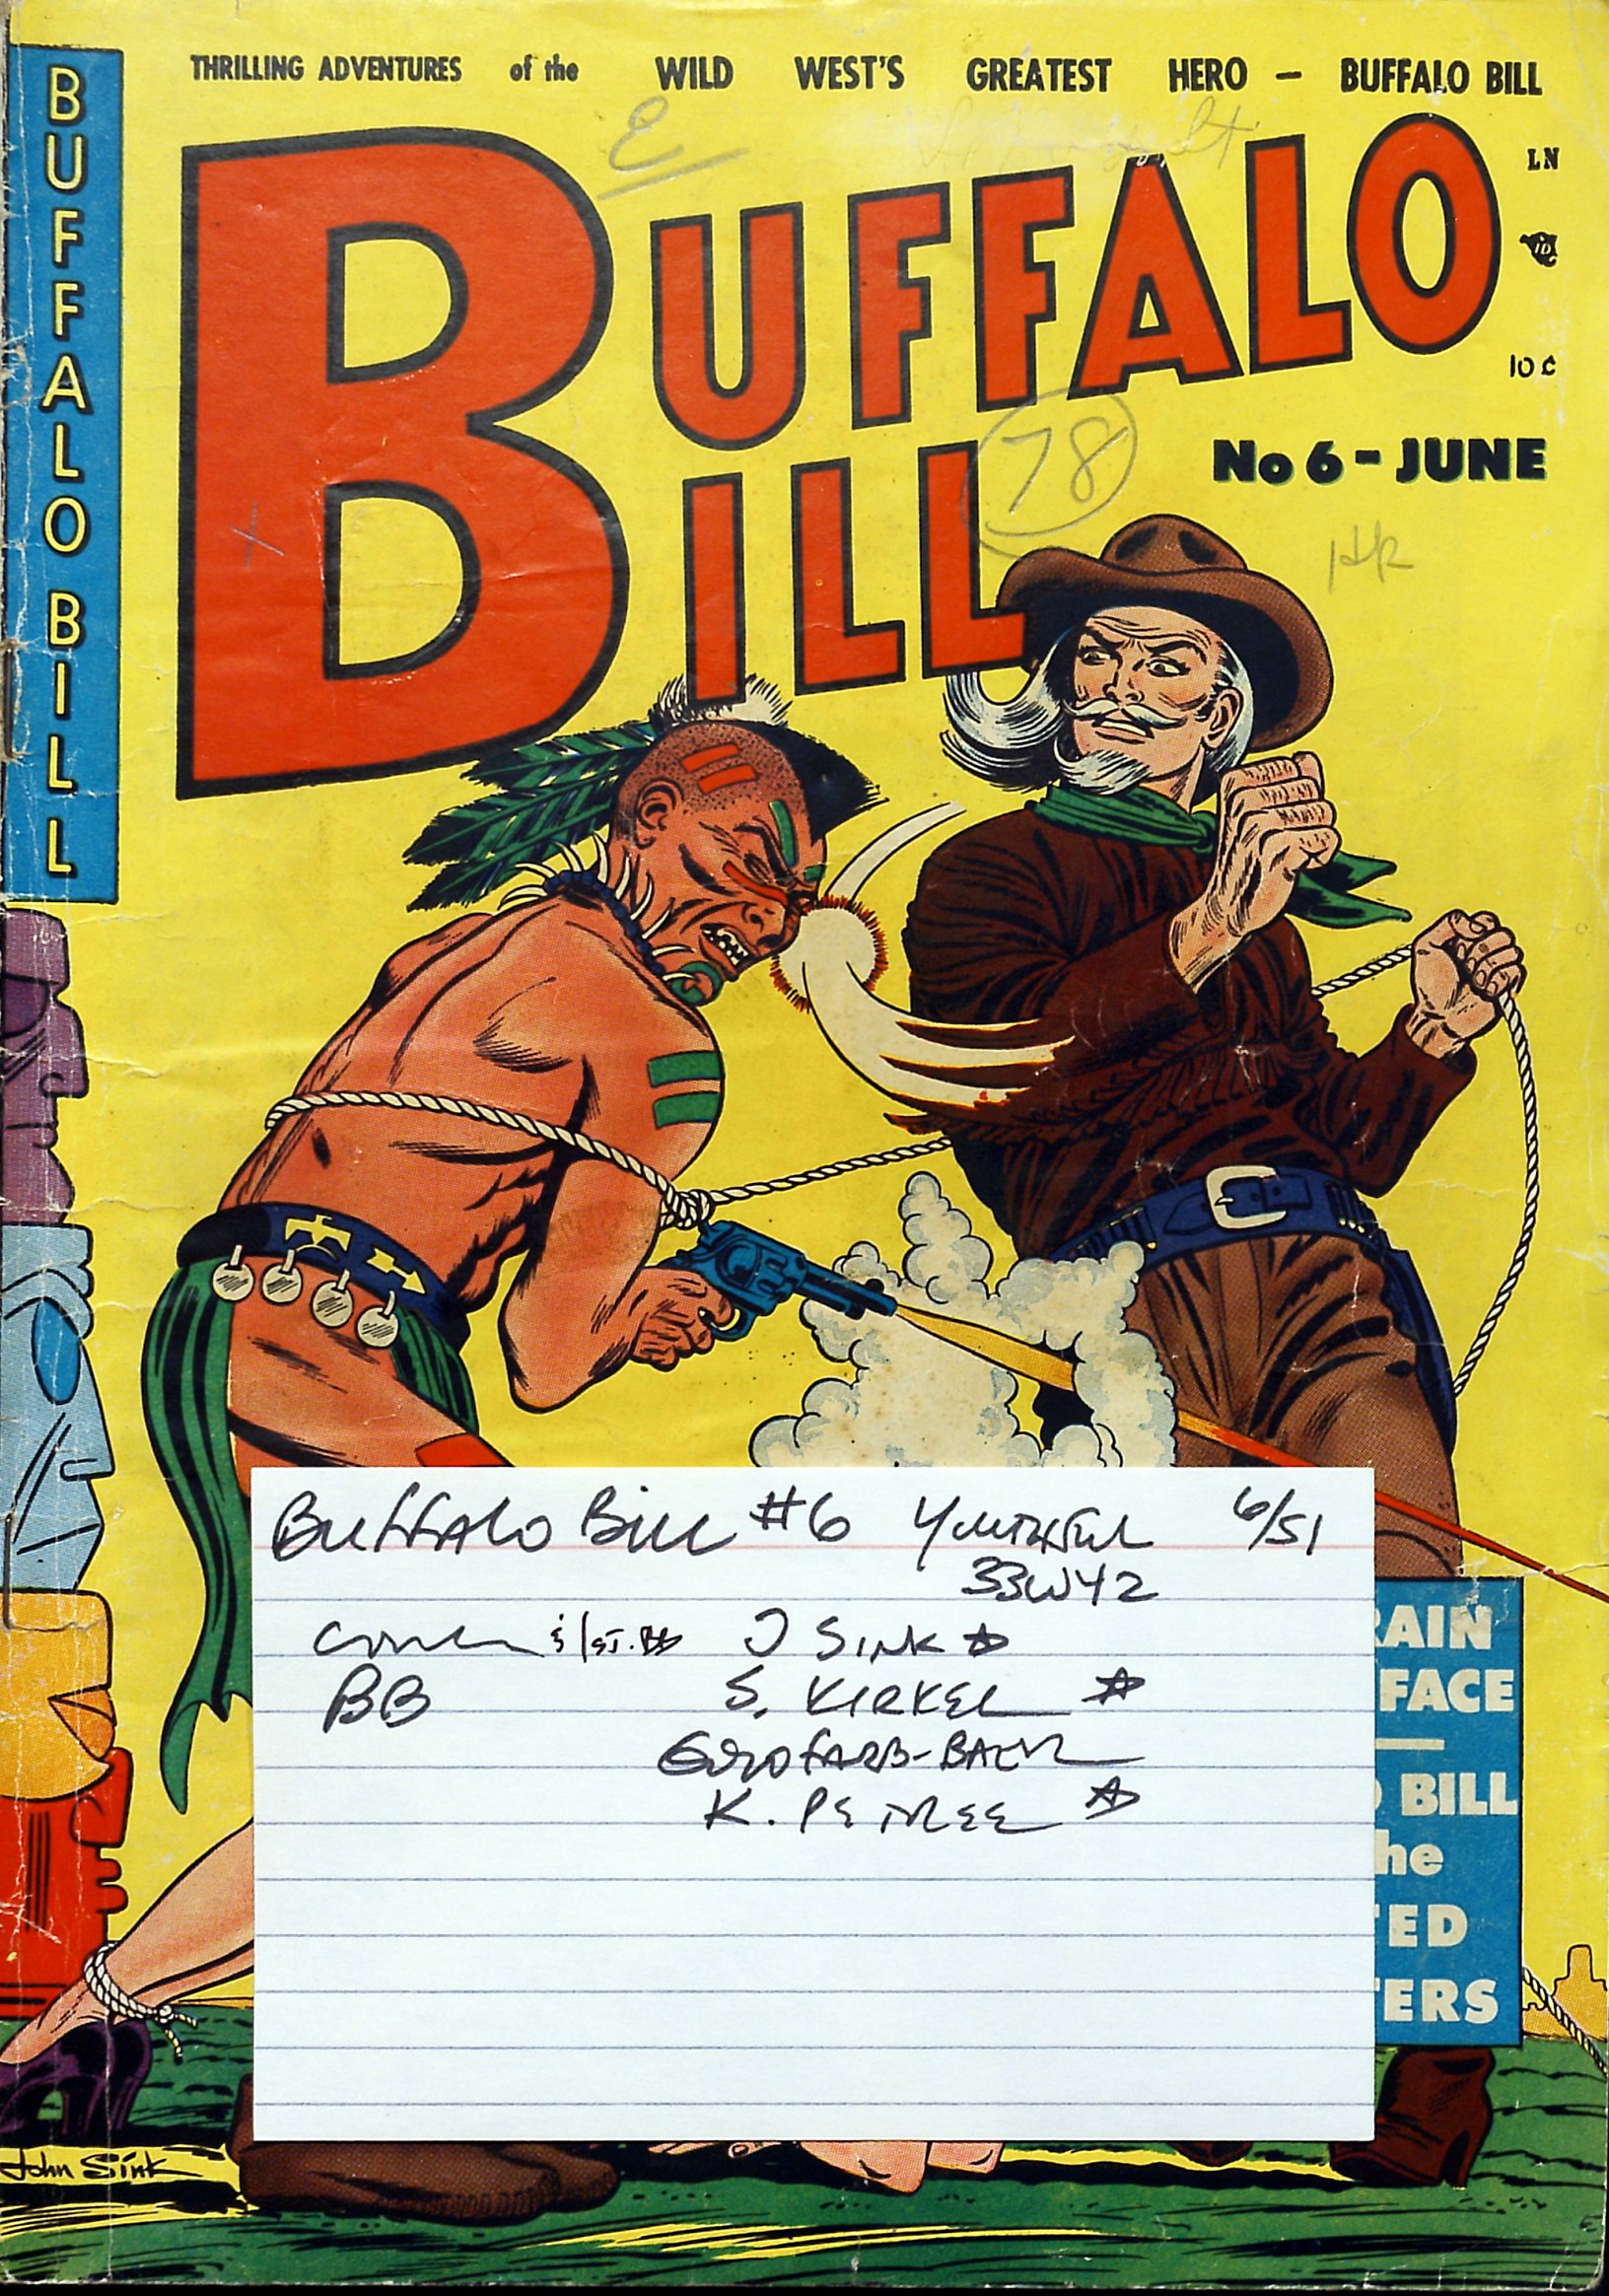 THRILLING ADVENTURES of the WILD WEST'S GREATEST HERO — BUFFALO BILL
BUFFALO BILL
BUFFALO
BILL
LN
10¢
No 6 - JUNE
E
78
HR
Buffalo Bill #6 Youthful 6/51
33W42
Cover & 1st. BB J Sink ☆
BB S. Kirkel ☆
Goldfarb-Baer
K. Petree ☆
RAIN
FACE
—
BILL
he
TED
TERS
John Sink